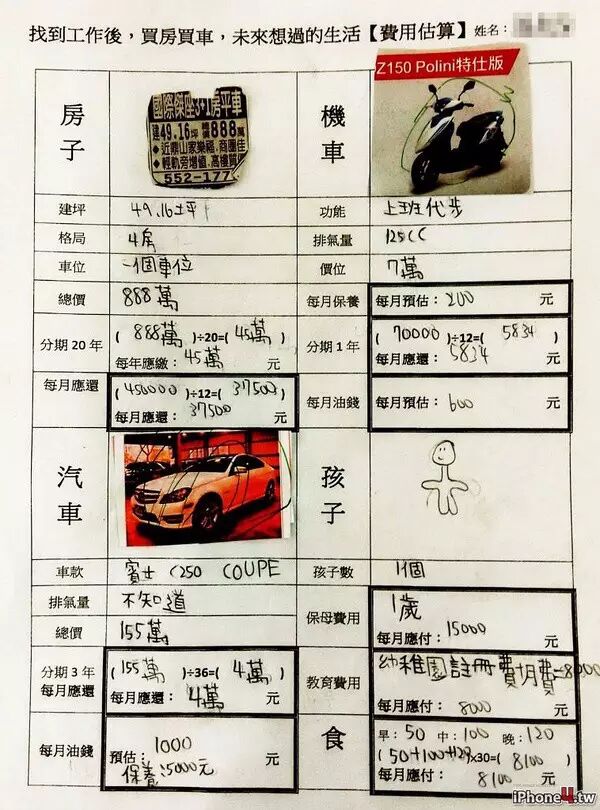 找到工作後，買房買車，未來想過的生活【費用估算】 姓名：
房子
國際傑座3+1房平車
建49.16坪 888萬
近鼎山家樂福.商圈佳
輕軌旁增值.高樓質
552-177
建坪 49.16坪
格局 4房
車位 一個車位
總價 888萬
分期 20 年 ( 888萬 )÷20=( 45萬 )
每年應繳： 45萬 元
每月應還 ( 450000 )÷12=( 37500 )
每月應還： 37500 元
機車
Z150 Polini特仕版
功能 上班代步
排氣量 125CC
價位 7萬
每月保養 每月預估： 200 元
分期 1 年 ( 70000 )÷12=( 5834 )
每月應還： 5834 元
每月油錢 每月預估： 600 元
汽車
車款 賓士 C250 COUPE
排氣量 不知道
總價 155萬
分期 3 年 ( 155萬 )÷36=( 4萬 )
每月應還 每月應還： 4萬 元
每月油錢 預估： 1000
保養：5000元
孩子
孩子數 1個
保母費用 1歲
每月應付： 15000 元
教育費用 幼稚園註冊費+月費=8000
每月應付： 8000 元
食
早：50 中：100 晚：120
( 50+100+120 )x30=( 8100 )
每月應付： 8100 元
iPhone4.tw